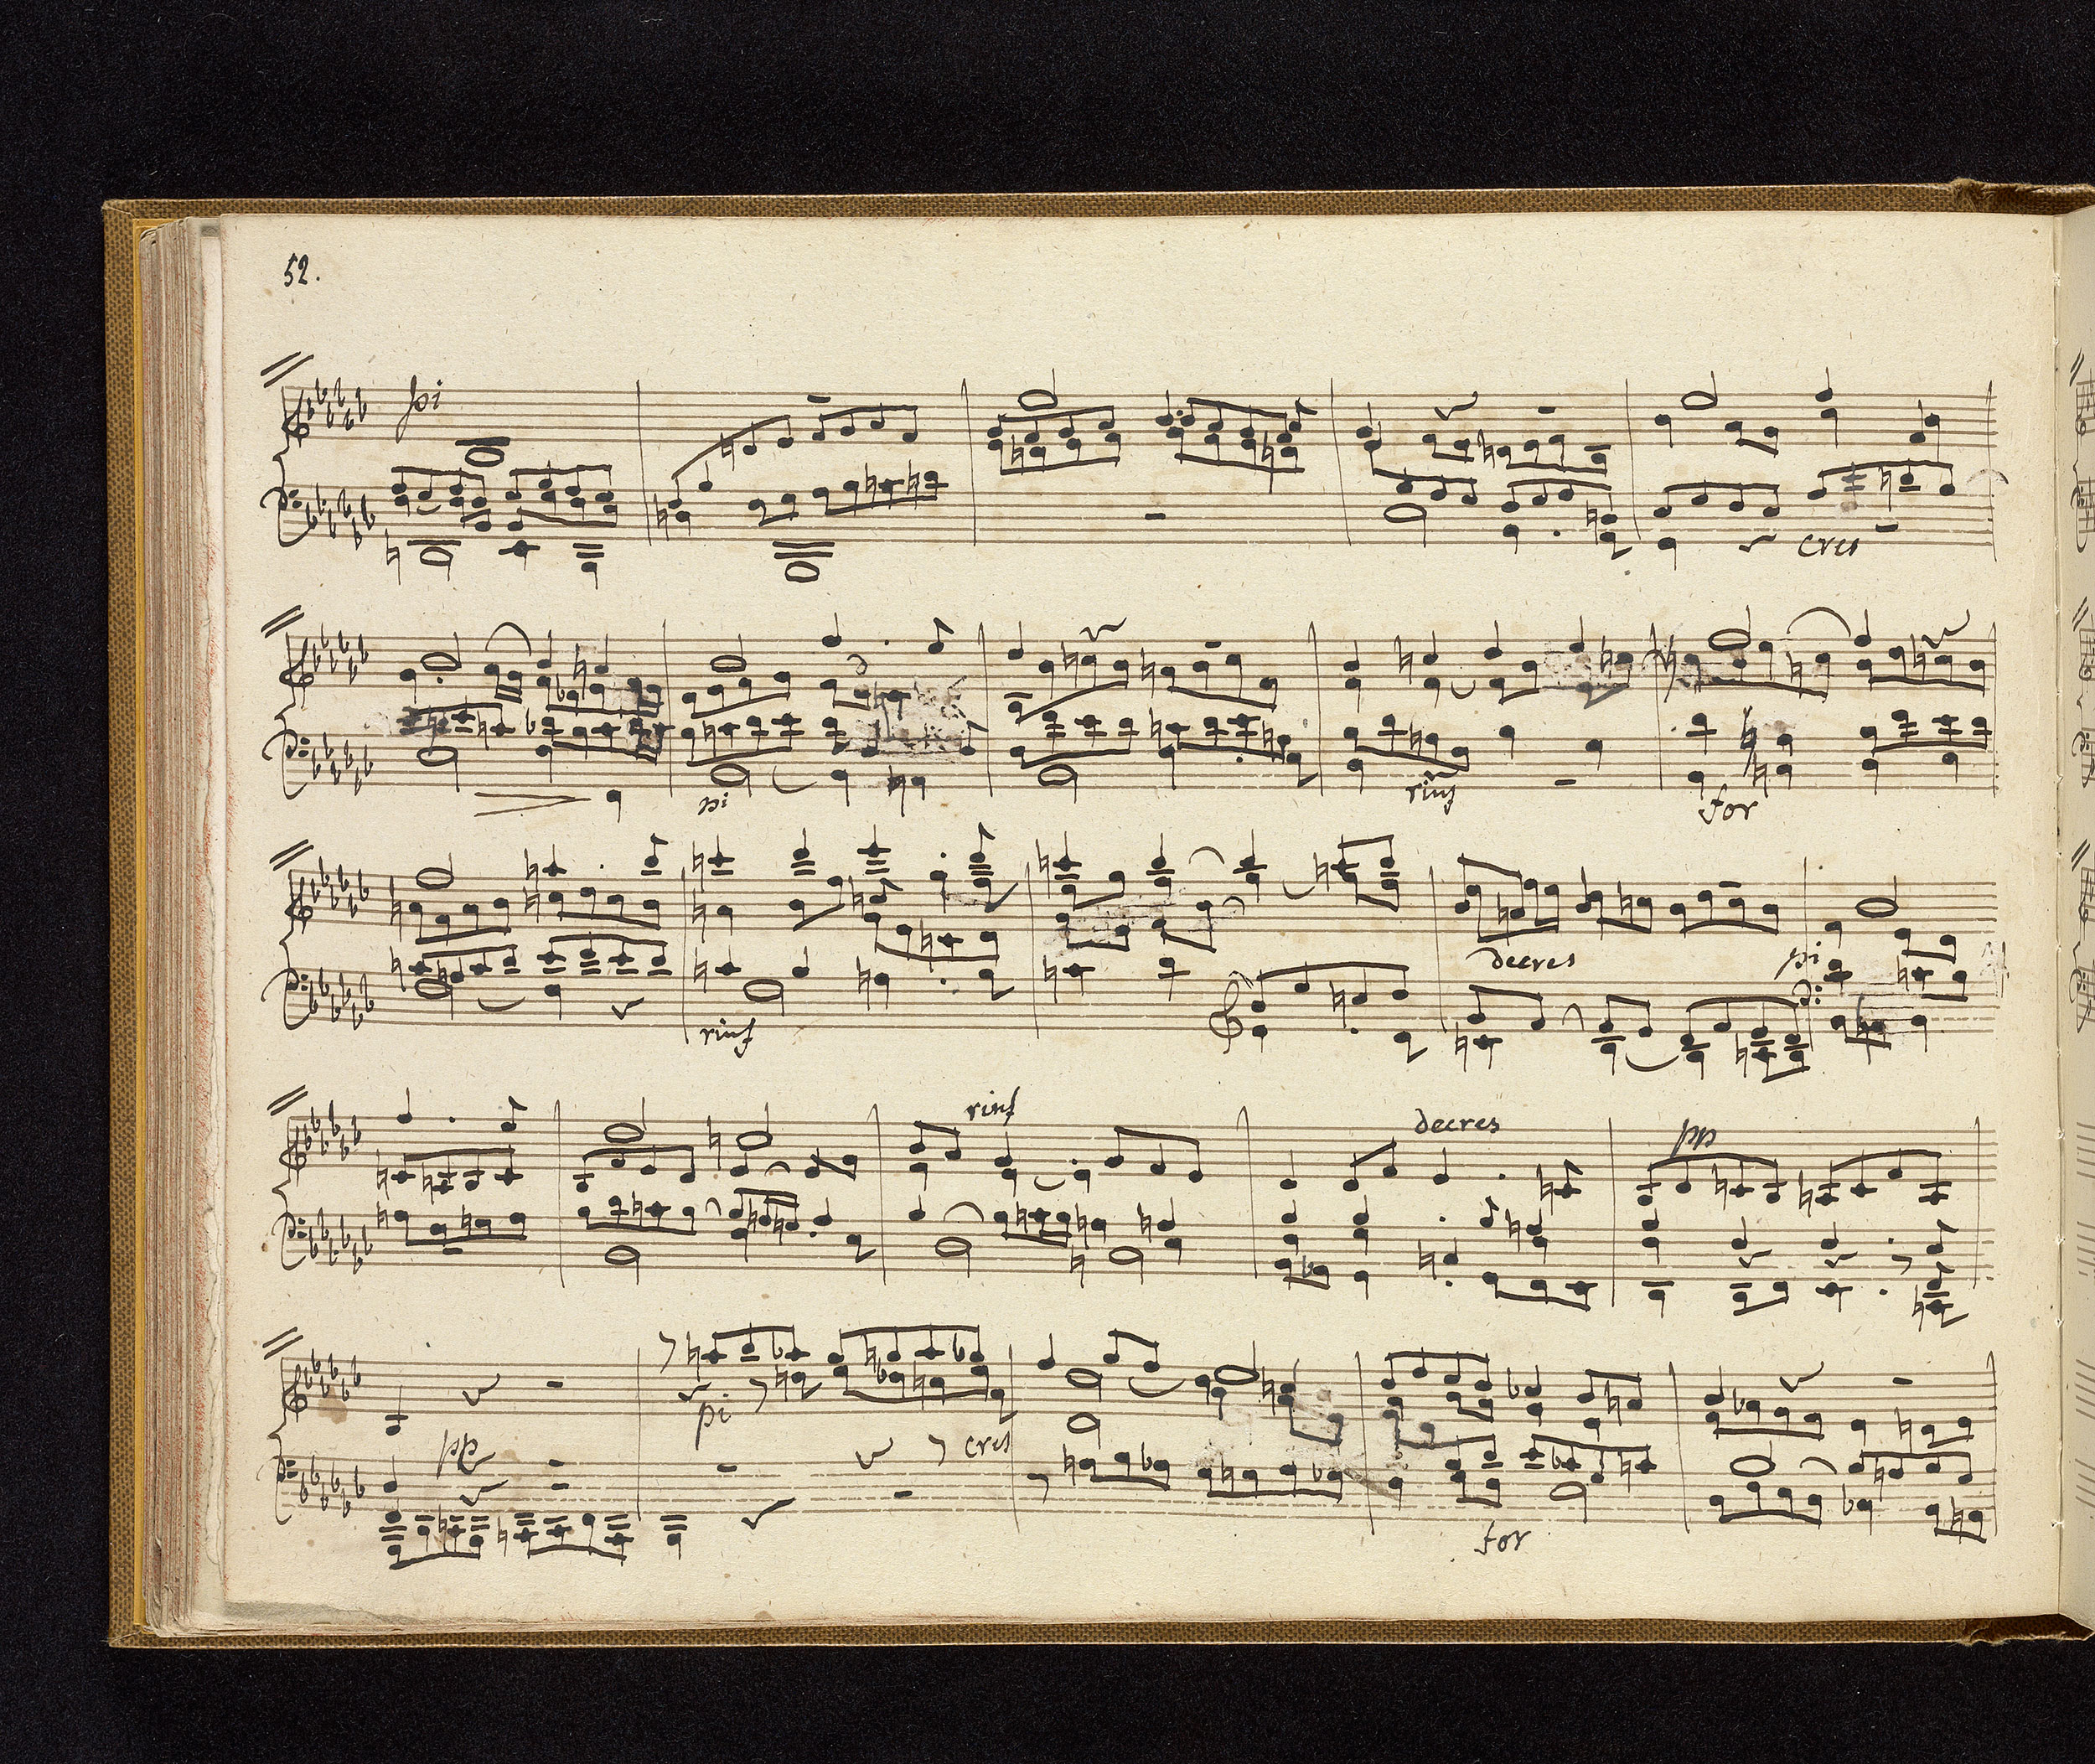 52.
pi
cres
pi
rinf
for
decres
pi
rinf
rinf
decres
pp
pi
pp
cres
for